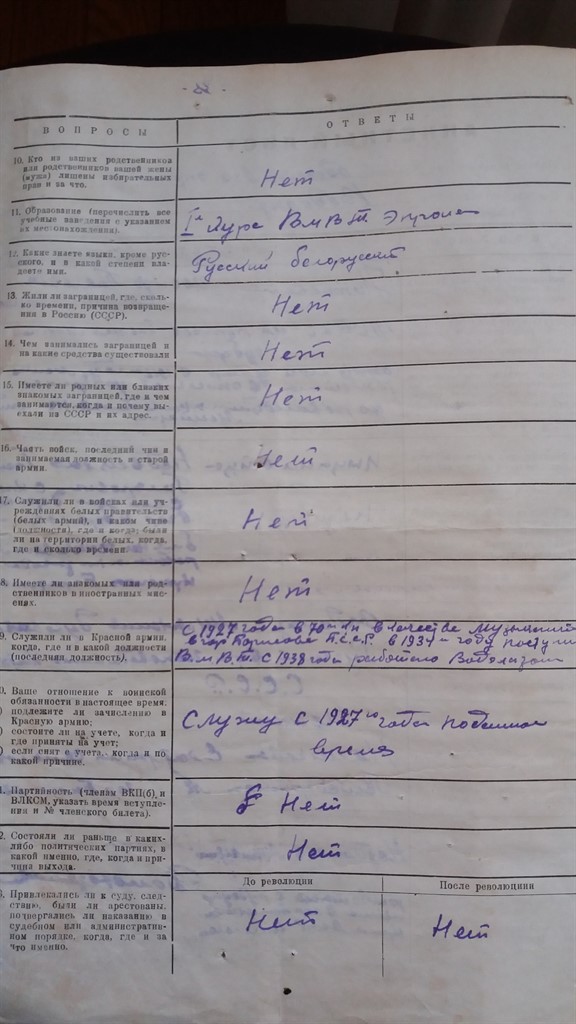 ВОПРОСЫ
ОТВЕТЫ
10. Кто из ваших родственников
или родственников вашей жены
(мужа) лишены избирательных
прав и за что.
Нет
11. Образование (перечислить все
учебные заведения с указанием
их местонахождения).
Курса В.М.В.Т.
12. Какие знаете языки, кроме рус-
ского, и в какой степени вла-
деете ими.
Русский белорусский
13. Жили ли заграницей, где, сколь-
ко времени, причина возвраще-
ния в Россию (СССР).
Нет
14. Чем занимались заграницей и
на какие средства существовали
Нет
15. Имеете ли родных или близких
знакомых заграницей, где и чем
занимаются, когда и почему вы-
ехали из СССР и их адрес.
Нет
16. Часть войск, последний чин и
занимаемая должность в старой
армии.
Нет
17. Служили ли в войсках или уч-
реждениях белых правительств
(белых армий), в каком чине
(должности), где и когда; были
ли на территории белых, когда,
где и сколько времени.
Нет
8. Имеете ли знакомых или род-
ственников в иностранных мис-
сиях.
Нет
9. Служили ли в Красной армии,
когда, где и в какой должности
(последняя должность).
С 1927 года в в качестве
в гор в году
В.М.В.Т. С 1938 года Водолазом
0. Ваше отношение к воинской
обязанности в настоящее время:
) подлежите ли зачислению в
Красную армию;
) состоите ли на учете, когда и
где приняты на учет;
) если снят с учета, когда и по
какой причине.
Служу с 1927 года
время
1. Партийность (членам ВКП(б) и
ВЛКСМ, указать время вступле-
ния и № членского билета).
Нет
2. Состояли ли раньше в каких-
либо политических партиях, в
какой именно, где, когда и при-
чина выхода.
Нет
3. Привлекались ли к суду, след-
ствию, были ли арестованы,
подвергались ли наказанию в
судебном или административ-
ном порядке, когда, где и за
что именно.
До революции
После революции
Нет
Нет